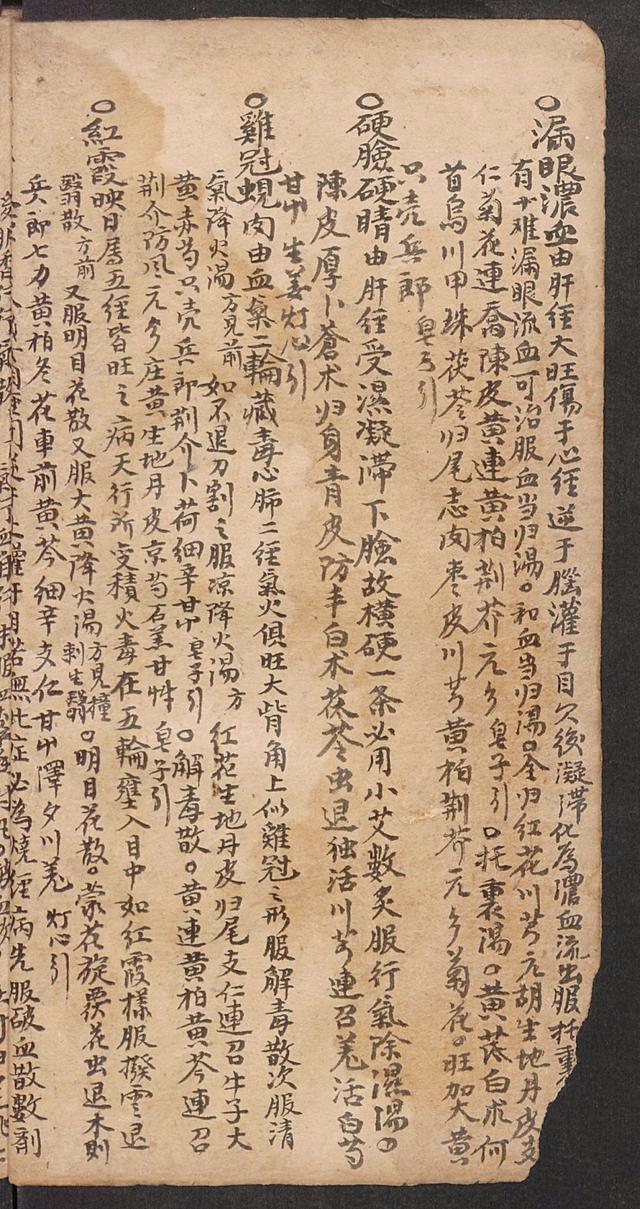 ○漏眼濃血由肝経大旺傷于心経逆于腦灌于目久後凝滯化為膿血流出服托裏
有少难漏眼流血可治服血当归湯。和血当归湯。全归红花川芎元胡生地丹皮支
仁菊花連喬陳皮黄連黄柏荆芥元参皂子引。托裏湯。黄芪白术何
首烏川甲珠茯苓归尾志肉枣皮川芎黄柏荆芥元参菊花。旺加大黄
只壳兵郎皂子引
○硬臉硬睛由肝経受濕凝滯下臉故横硬一条必用小艾數炙服行氣除濕湯。
陳皮厚卜蒼术归身青皮防丰白术茯苓虫退独活川芎連召羗活白芍
甘艸生姜灯心引
○雞冠蜆肉由血氣二輪藏毒心肺二経氣火俱旺大眥角上似雞冠之形服解毒散次服清
氣降火湯方見前如不退刀割之服凉降火湯方红花生地丹皮归尾支仁連召牛子大
黄赤芍只壳兵郎荆介卜荷細辛甘艸皂子引。解毒散。黄連黄柏黄芩連召
荆介防风元参庄黄生地丹皮京芍石羔甘艸皂子引
○紅霞映日属五経皆旺之病天行所受積火毒在五輪壅入目中如红霞樣服撥雲退
翳散方前又服明目花散又服大黄降火湯方見撞刺生翳。明目花散。蒙花旋覆花虫退木則
兵郎七力黄柏冬花車前黄芩細辛支仁甘艸澤夕川羗灯心引
無此症必為燒経病先服破血散數剤